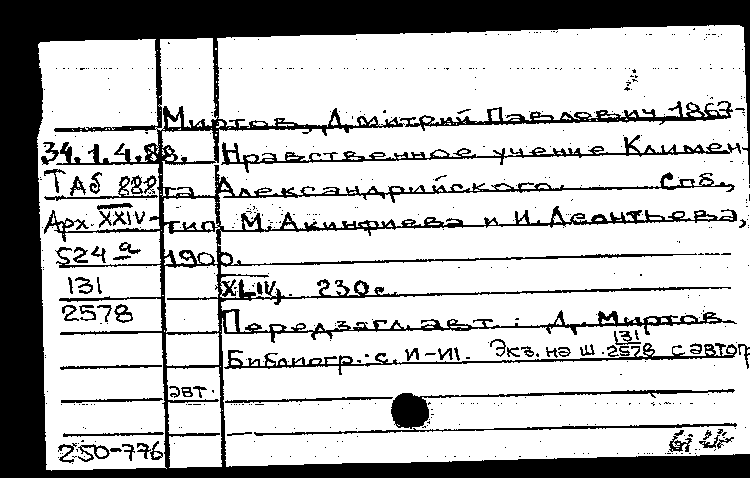 Миртов, Дмитрий Павлович, 1867-
34.1.4.88. Нравственное учение Климен-
ТАб 882 та Александрийского. Спб.,
Арх. XXIV- тип. М. Акинфиева и И. Леонтьева,
524 а 1900.
131 XLIV, 230 с.
2578 Перед загл. авт.: Д. Миртов
Библиогр.: с. II-III. Экз. на ш. 131/2578 с автогр
авт.
250-776